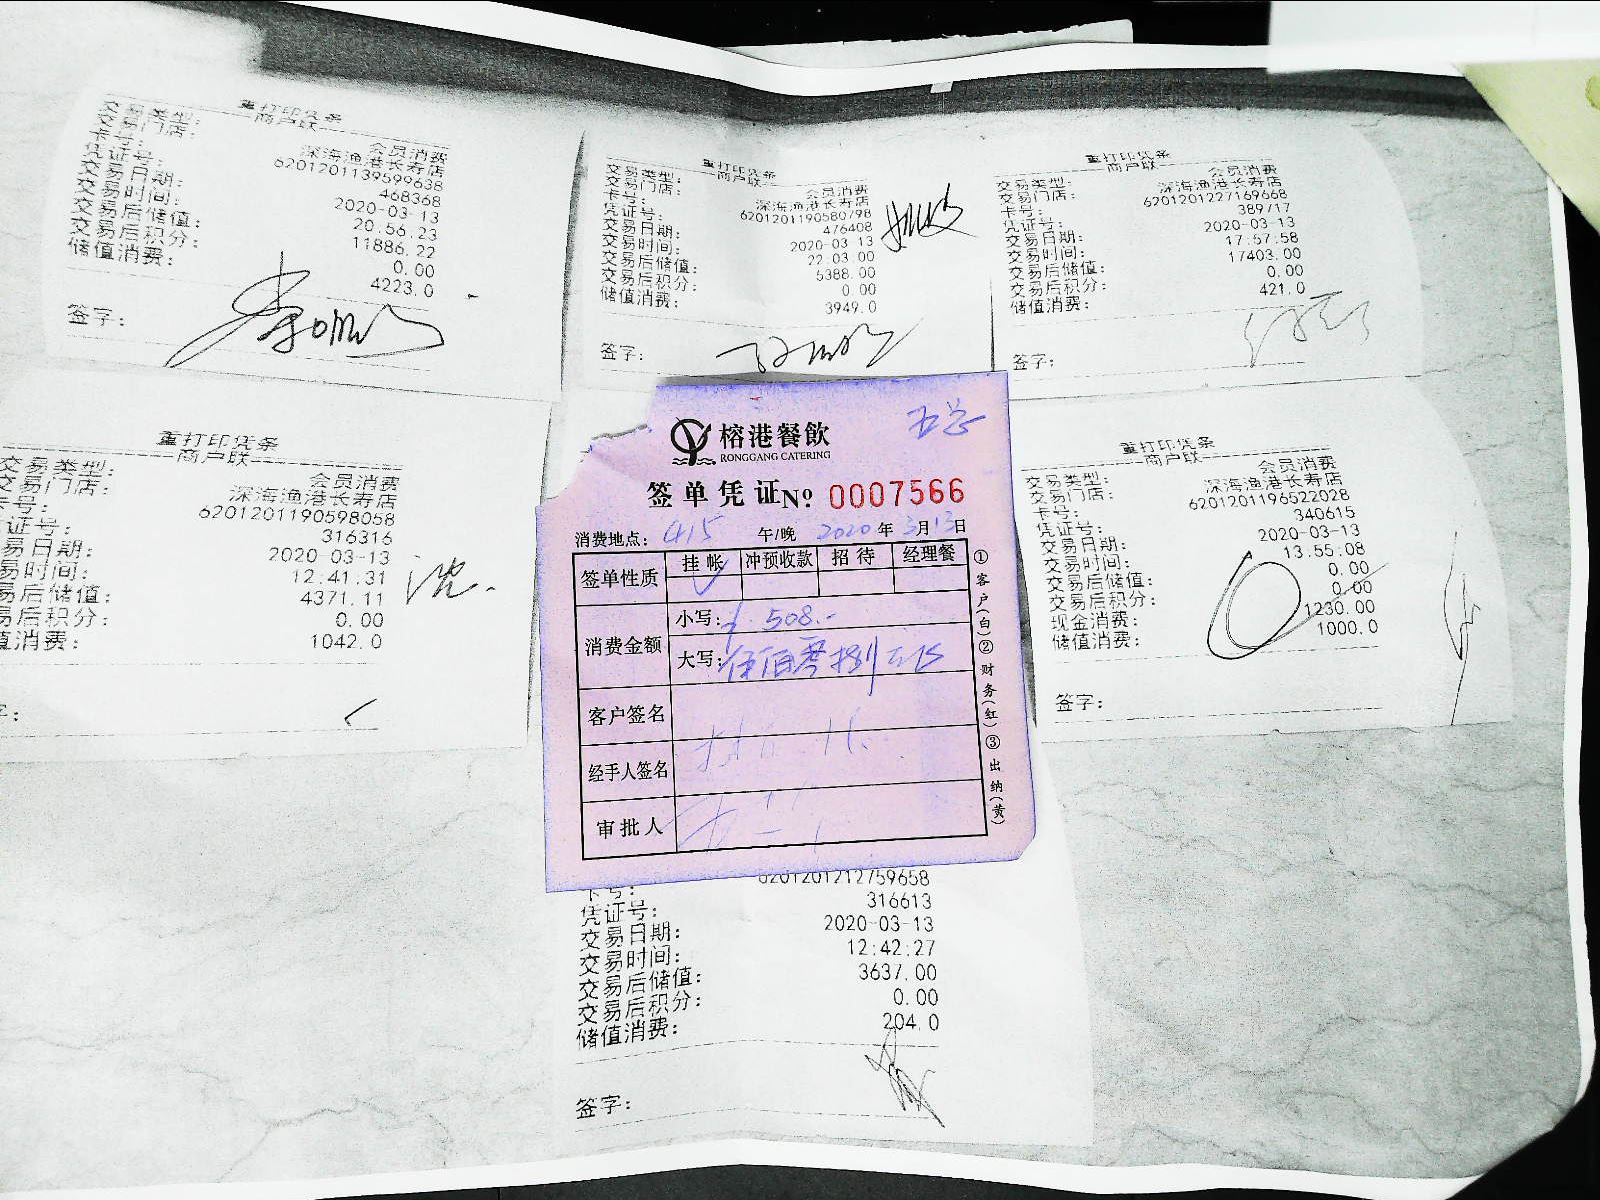 重打印凭条
商户联
交易类型: 会员消费
交易门店: 深海渔港长寿店
卡号: 6201201139599638
凭证号: 468368
交易日期: 2020-03-13
交易时间: 20.56.23
交易后储值: 11886.22
交易后积分: 0.00
储值消费: 4223.0
签字:
重打印凭条
商户联
交易类型: 会员消费
交易门店: 深海渔港长寿店
卡号: 6201201190580798
凭证号: 476408
交易日期: 2020-03 13
交易时间: 22.03.00
交易后储值: 5388.00
交易后积分: 0.00
储值消费: 3949.0
签字:
重打印凭条
商户联
交易类型: 会员消费
交易门店: 深海渔港长寿店
卡号: 6201201227169668
凭证号: 389717
交易日期: 2020-03-13
交易时间: 17:57:58
交易后储值: 17403.00
交易后积分: 0.00
储值消费: 421.0
签字:
重打印凭条
商户联
交易类型: 会员消费
交易门店: 深海渔港长寿店
卡号: 6201201190598058
证号: 316316
易日期: 2020 03-13
易时间: 12:41:31
易后储值: 4371.11
易后积分: 0.00
值消费: 1042.0
字:
沈.
榕港餐飲
RONGGANG CATERING
签单凭证 No 0007566
消费地点: 415 午/晚 2020年3月13日
签单性质 挂帐 冲预收款 招待 经理餐
消费金额 小写: ¥508.-
大写: 伍佰零捌元正
客户签名
经手人签名
审批人
①客户(白)②财务(红)③出纳(黄)
重打印凭条
商户联
交易类型: 会员消费
交易门店: 深海渔港长寿店
卡号: 6201201196522028
凭证号: 340615
交易日期: 2020-03-13
交易时间: 13.55:08
交易后储值: 0.00
交易后积分: 0.00
现金消费: 1230.00
储值消费: 1000.0
签字:
卡号: 6201201212759658
凭证号: 316613
交易日期: 2020-03-13
交易时间: 12:42:27
交易后储值: 3637.00
交易后积分: 0.00
储值消费: 204.0
签字: